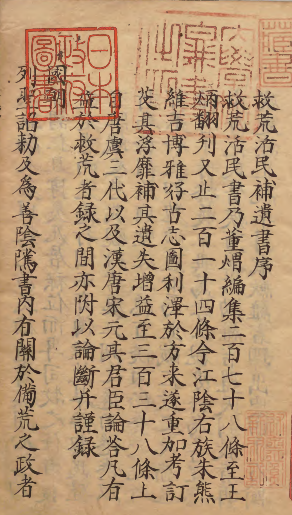 救荒活民補遺書序
救荒活民書乃董煟編集二百七十八條至王
炳翻刋又止二百一十四條今江陰石族朱熊
維吉博雅好古志圖利澤於方来遂重加考訂
芟其浮靡補其遺失增益至三百三十八條上
自唐虞三代以及漢唐宋元其君臣論荅凡有
益於救荒者録之間亦附以論斷并謹録
國朝
列聖詔勑及為善陰隲書内有關於備荒之政者
日本政府圖書